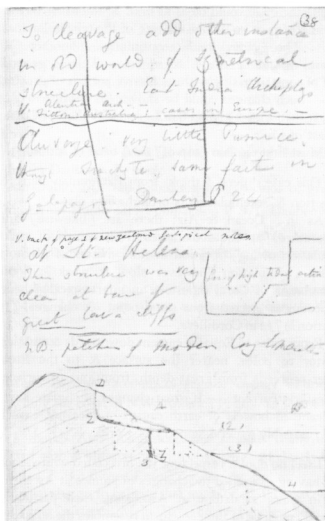 38
To Cleavage add other instances
in old world of Symetrical
structure. East India Archipelago
V. Aleutian Arch —
Fitton, Australia; cases in Europe —
Auvergne. very little Pumice,
though trachyte, same fact in
Galapagos Daubeny P 24
V. back of page 1 of New Zealand Geological notes
At St. Helena.
Thin structure was very
clear at base of
great lava cliffs
line of high tide action
N.B. patches of modern Conglomerate
D
Z
A
H
(2)
(3)
B
Z
4